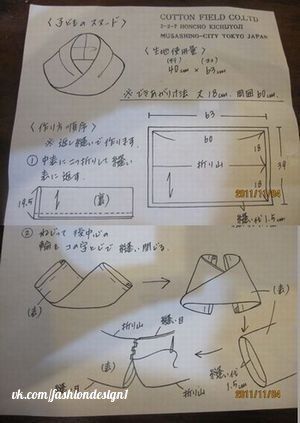 〈子どものスヌード〉
COTTON FIELD CO.LTD
2-2-7 HONCHO KICHIJYOJI
MUSASHINO-CITY TOKYO JAPAN
〈生地使用量〉
40cm × 63cm
※できあがり寸法 丈18cm、周囲60cm
〈作り方の順序〉
※返し縫いで作ります。
① 中表に二つ折りして縫い
表に返す。
63
60
18
折り山
18
39
縫い代1.5cm
2011/11/04
19.5
(裏)
② ねじって後中心の
輪をコの字とじで縫い閉じる。
(表)
(表)
折り山
縫い目
(表)
縫い目
折り山
縫い代
1.5cm
2011/11/04
vk.com/fashiondesign1